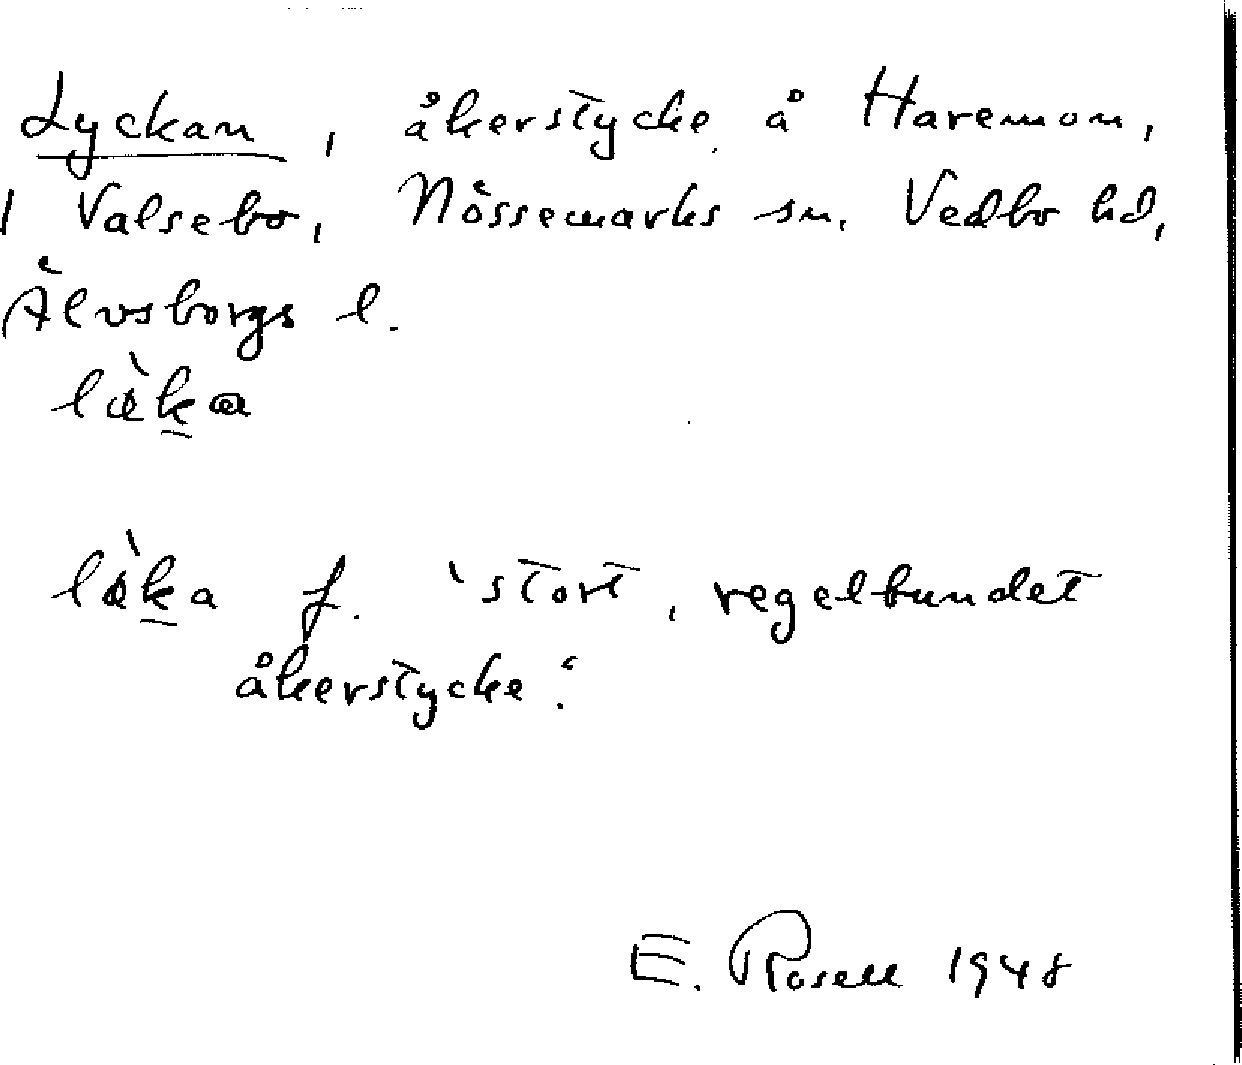 Lyckan, åkerstycke å Haremon,
1 Valsebo, Nössemarks sn. Vedbo hd,
Älvsborgs l.
lø̀ka
lø̀ka f. 'stort, regelbundet
åkerstycke'.
E. Rosell 1948